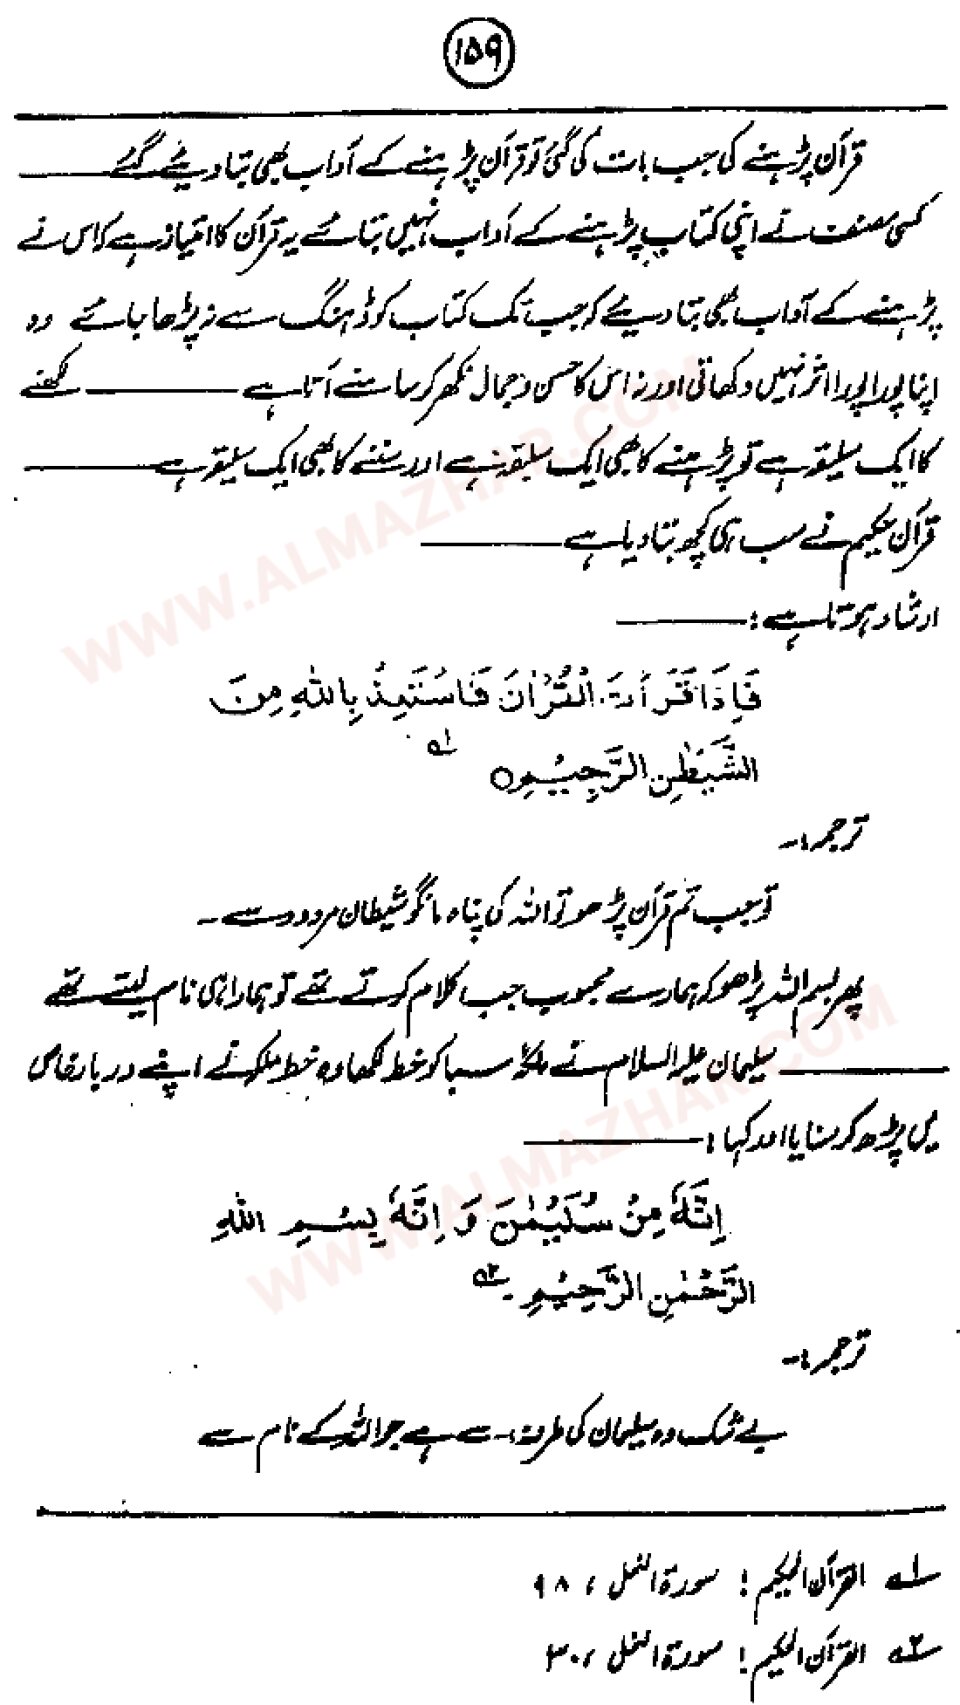 ۱۵۹
قرآن پڑہنے کی جب بات کی گئی تو قرآن پڑہنے کے آداب بھی بتا دیئے گئے ———
کسی مصنف نے اپنی کتاب پڑہنے کے آداب نہیں بتائے یہ قرآن کا امتیاز ہے کہ اس نے
پڑہنے کے آداب بھی بتا دیئے کہ جب تک کتاب کو ڈہنگ سے نہ پڑھا جائے وہ
اپنا پورا پورا اثر نہیں دکھاتی اور نہ اس کا حسن و جمال نکھر کر سامنے آتا ہے ——— لکھنے
کا ایک سلیقہ ہے تو پڑہنے کا بھی ایک سلیقہ ہے اور سننے کا بھی ایک سلیقہ ہے ———
قرآن حکیم نے سب ہی کچھ بتا دیا ہے ———
ارشاد ہوتا ہے : ———
فَاِذَا قَرَاْتَ الْقُرْاٰنَ فَاسْتَعِذْ بِاللّٰهِ مِنَ
الشَّيْطٰنِ الرَّجِيْمِ○ ؎۱
ترجمہ :-
تو جب تم قرآن پڑھو تو اللہ کی پناہ مانگو شیطان مردود سے ۔
پھر بسم اللہ پڑھو کہ ہمارے محبوب جب کلام کرتے تھے تو ہمارا ہی نام لیتے تھے
——— سلیمان علیہ السلام نے ملکۂ سبا کو خط لکھا وہ خط ملکہ نے اپنے دربار خاص
میں پڑھ کر سنایا اور کہا : ———
اِنَّهٗ مِنْ سُلَيْمٰنَ وَ اِنَّهٗ بِسْمِ اللّٰهِ
الرَّحْمٰنِ الرَّحِيْمِ ۔ ؎۲
ترجمہ :-
بے شک وہ سلیمان کی طرف سے ہے جو اللہ کے نام سے
؎۱ القرآن الحکیم : سورۃ النمل ، ۹۸
؎۲ القرآن الحکیم : سورۃ النمل ، ۳۰
WWW.ALMAZHAR.COM
WWW.ALMAZHAR.COM